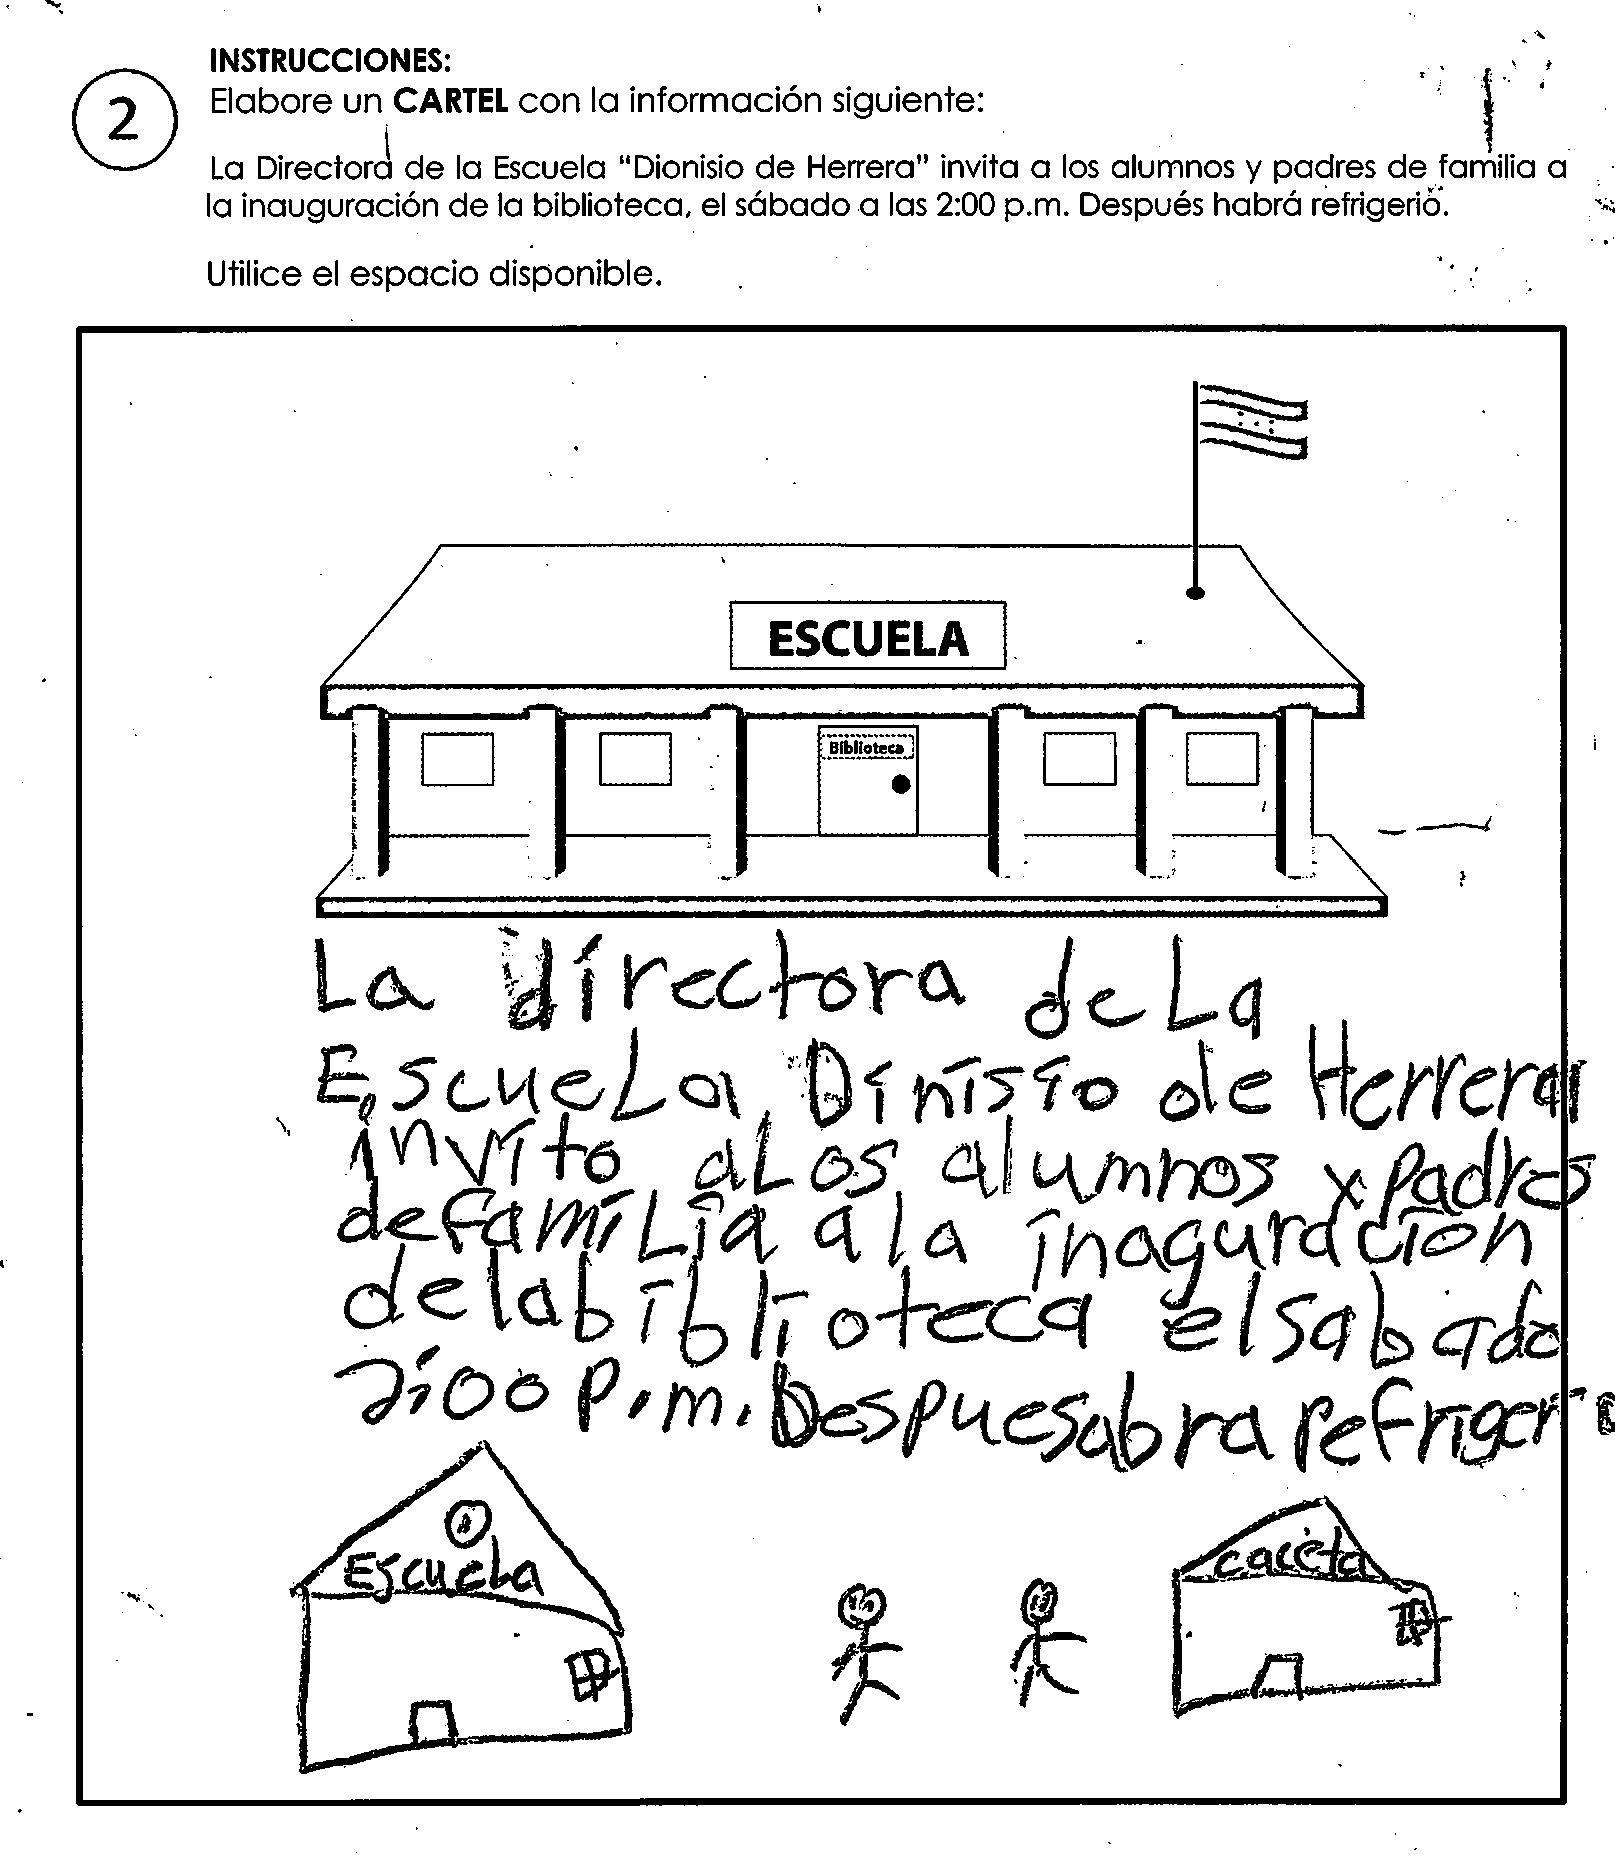 INSTRUCCIONES:
2
Elabore un CARTEL con la información siguiente:
La Directora de la Escuela "Dionisio de Herrera" invita a los alumnos y padres de familia a
la inauguración de la biblioteca, el sábado a las 2:00 p.m. Después habrá refrigerio.
Utilice el espacio disponible.
ESCUELA
Biblioteca
La directora de La
EscueLa Dinisio de Herrera
invito aLos alumnos y padres
de famiLia a la inaguracion
de la biblioteca el sabado
2:00 p.m. Despues abra refrigerio
EscueLa
caceta